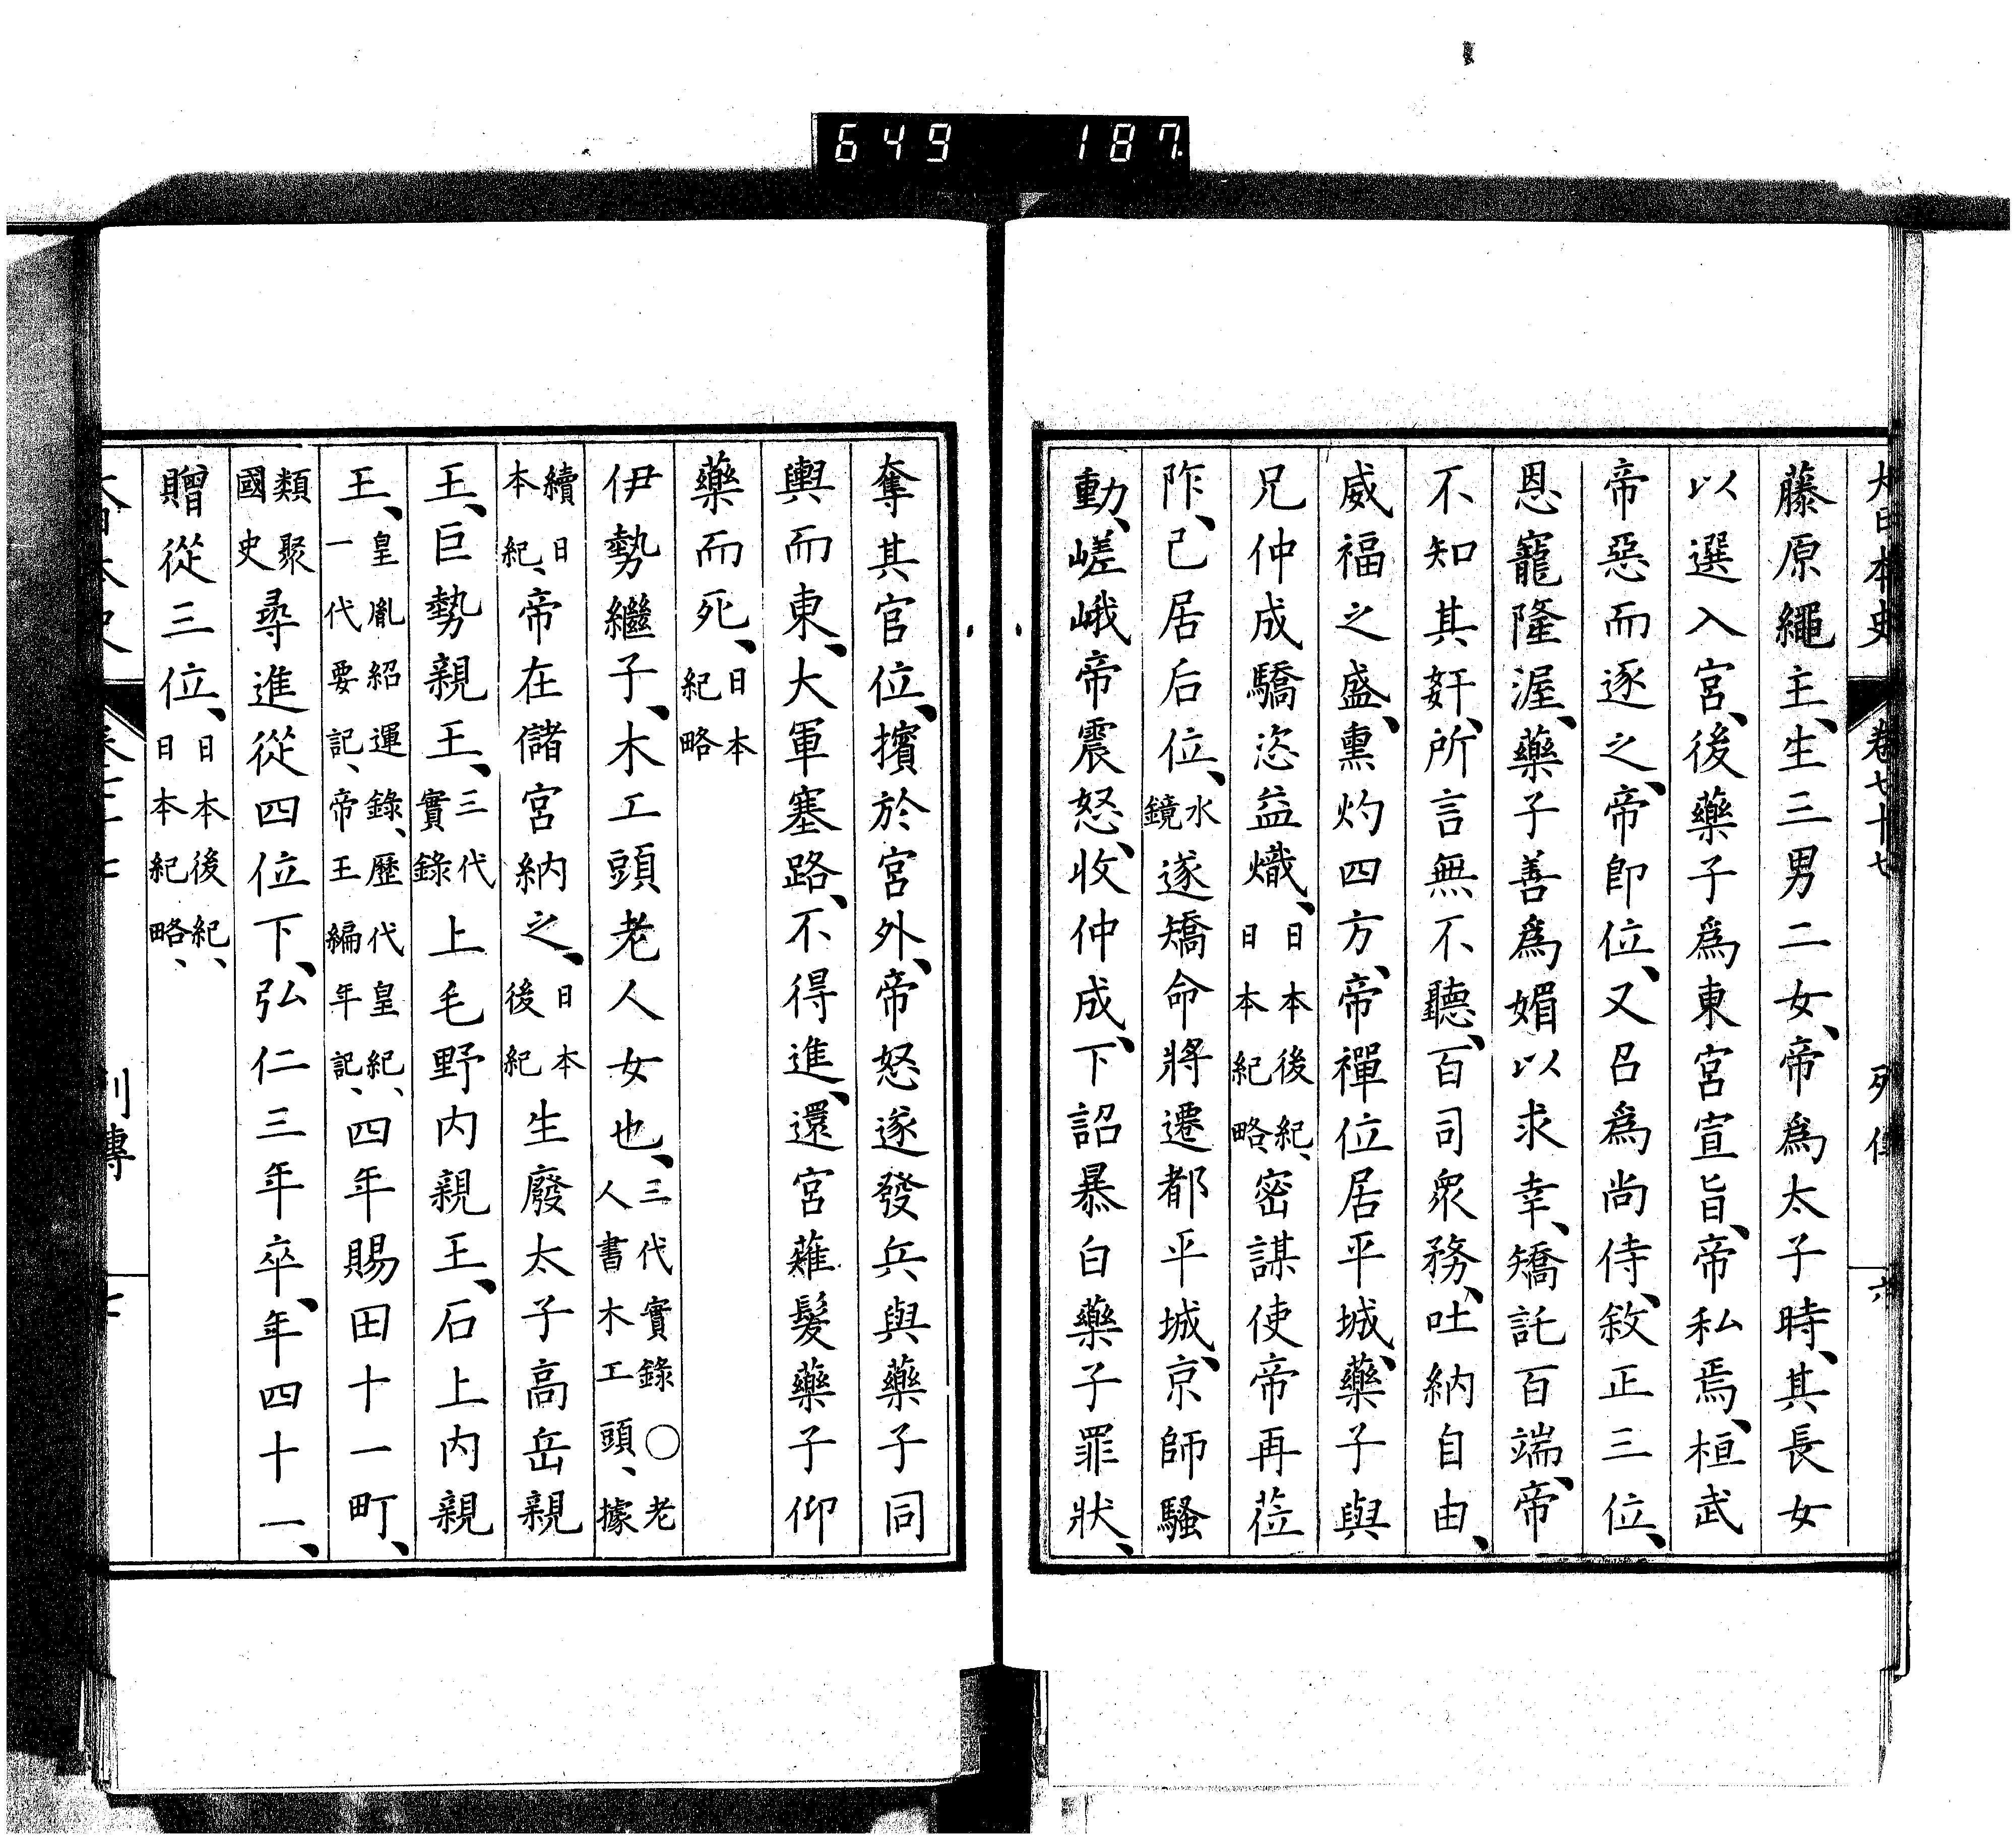 649 187
大日本史 卷七十七 列傳 六
藤原繩主、生三男二女、帝爲太子時、其長女
以選入宮、後藥子爲東宮宣旨、帝私焉、桓武
帝惡而逐之、帝卽位、又召爲尚侍、敘正三位、
恩寵隆渥、藥子善爲媚以求幸、矯託百端、帝
不知其姧、所言無不聽、百司衆務、吐納自由、
威福之盛、熏灼四方、帝禪位居平城、藥子與
兄仲成驕恣益熾、日本後紀、日本紀略、密謀使帝再莅
阼、己居后位、水鏡遂矯命將遷都平城、京師騷
動、嵯峨帝震怒、收仲成、下詔暴白藥子罪狀、
奪其官位、擯於宮外、帝怒遂發兵與藥子同
輿而東、大軍塞路、不得進、還宮薙髮藥子仰
藥而死、日本紀略
伊勢繼子、木工頭老人女也、三代實錄○老人書木工頭、據
續日本紀、帝在儲宮納之、日本後紀生廢太子高岳親
王、巨勢親王、三代實錄上毛野内親王、石上内親
王、皇胤紹運錄、歷代皇紀、一代要記、帝王編年記、四年賜田十一町、
類聚國史尋進從四位下、弘仁三年卒、年四十一、
贈從三位、日本後紀、日本紀略、
列傳